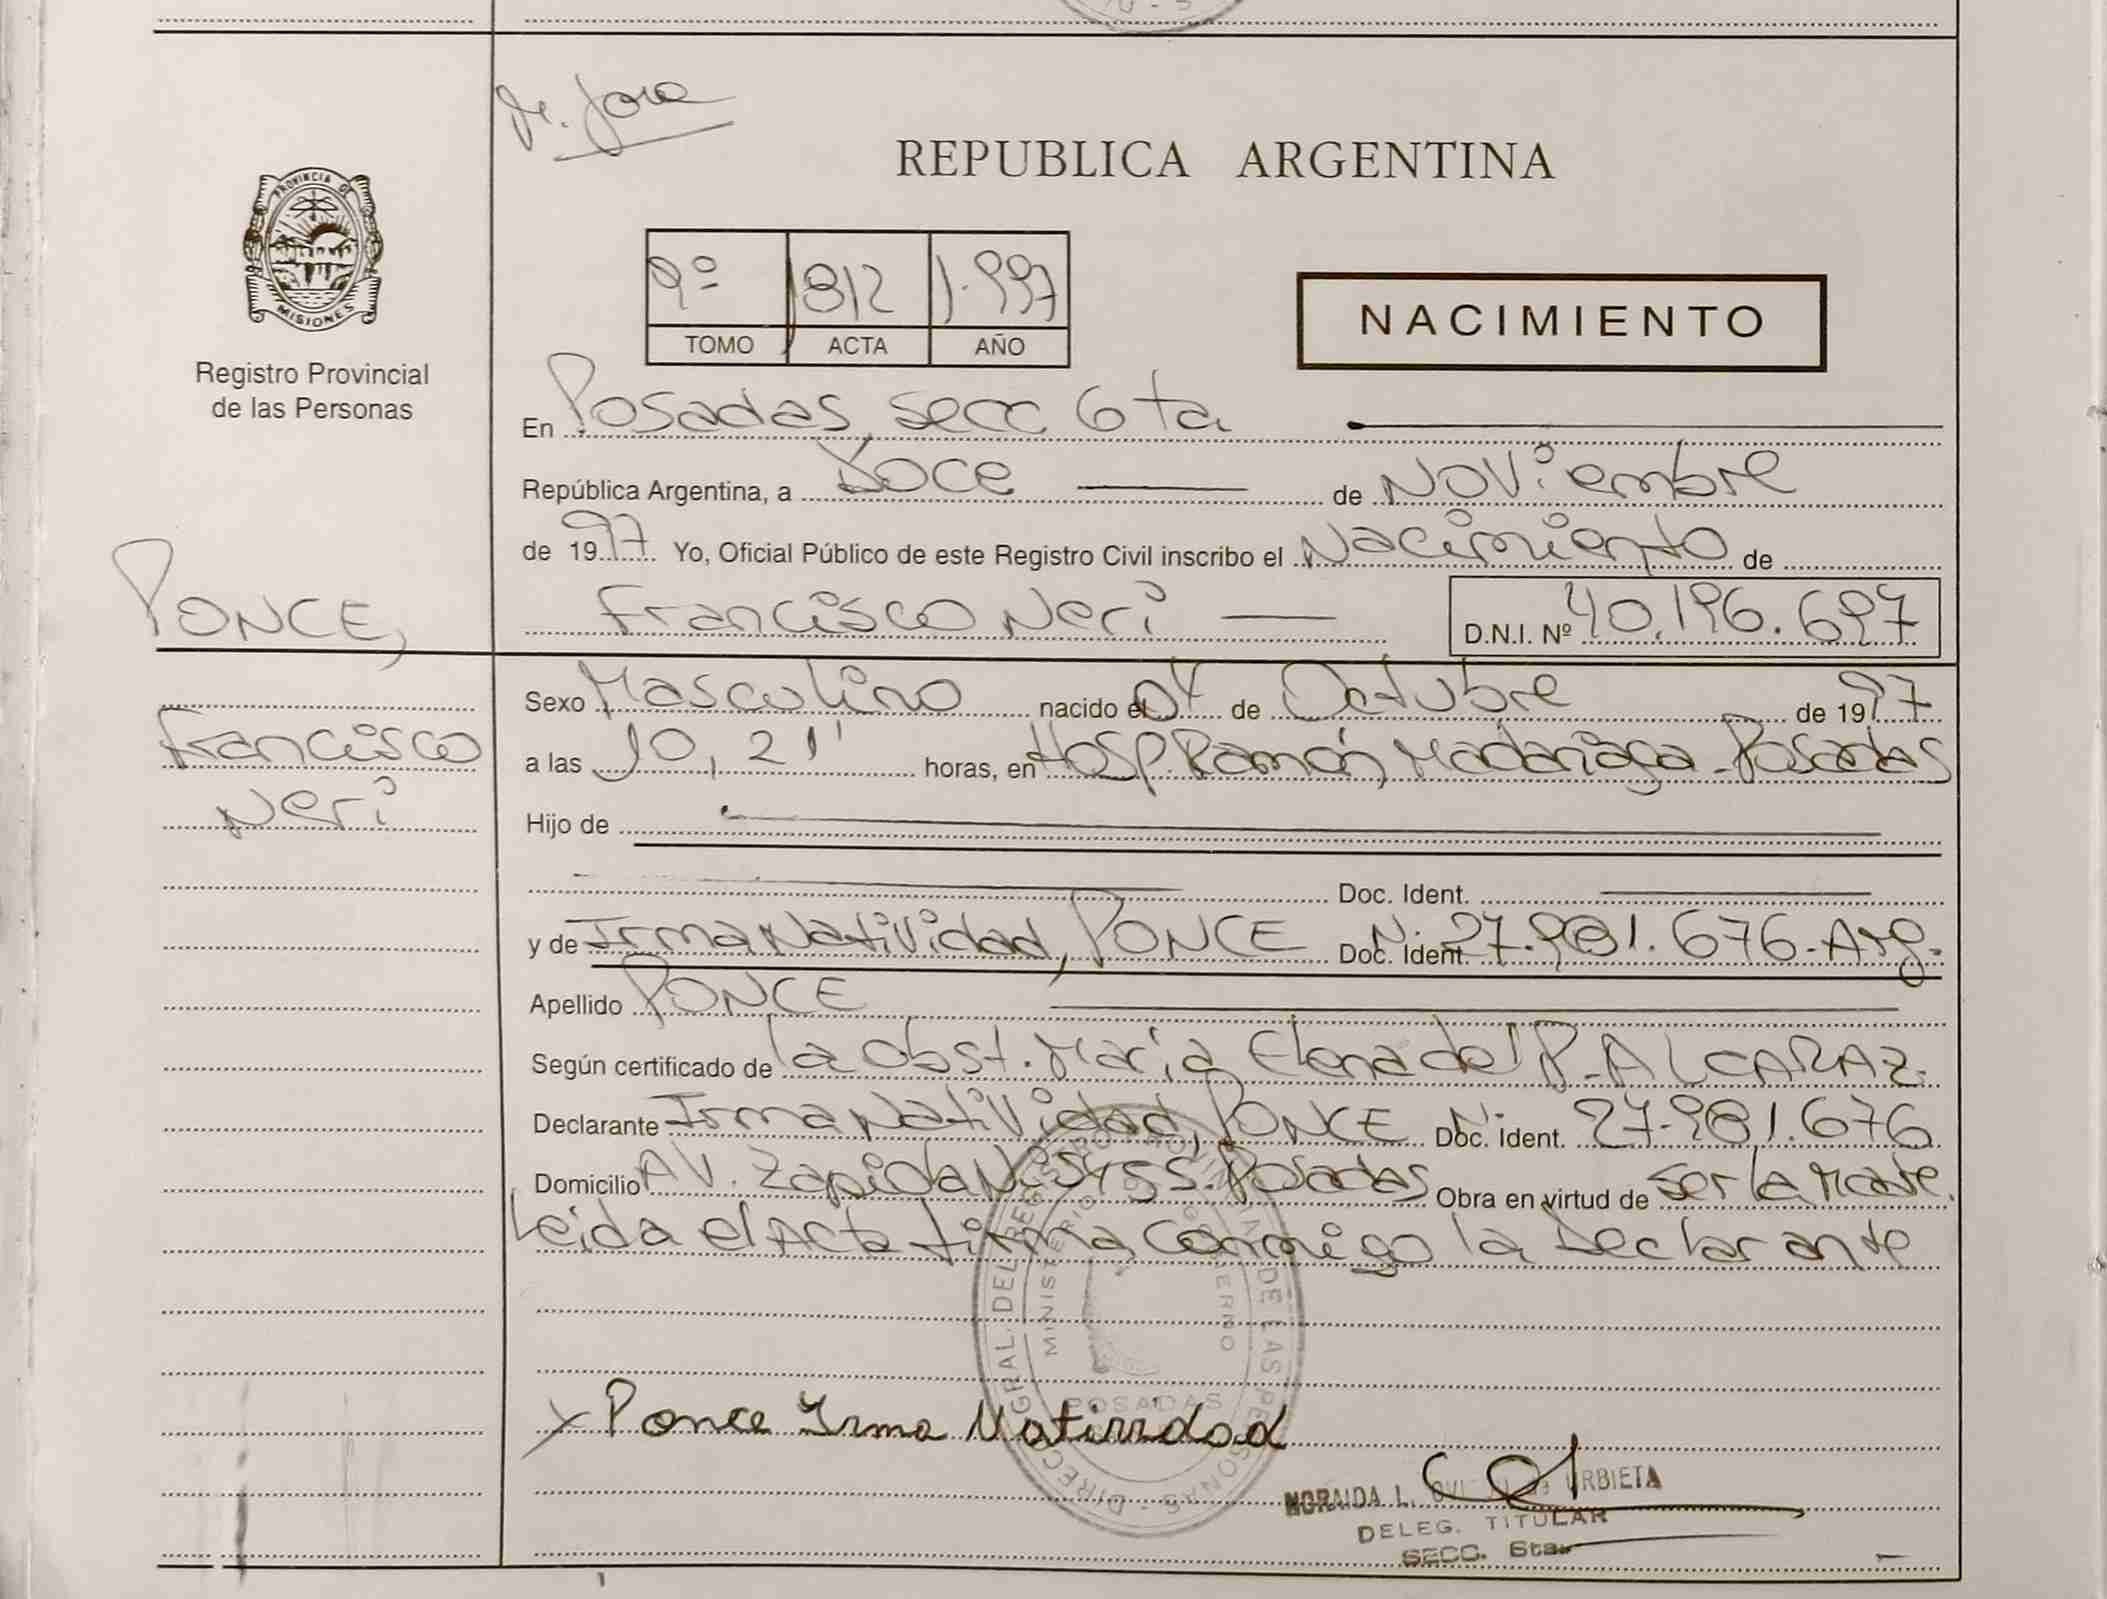 REPUBLICA ARGENTINA
PROVINCIA DE
MISIONES
Registro Provincial
de las Personas
9º 1812 1.997
TOMO ACTA AÑO
NACIMIENTO
En Posadas, secc 6ta
República Argentina, a Doce de Noviembre
de 1997 Yo, Oficial Público de este Registro Civil inscribo el Nacimiento de
Francisco Neri D.N.I. Nº 40.196.697
PONCE,
Francisco
Neri
Sexo Masculino nacido el 04 de Octubre de 1997
a las 10,21' horas, en Hosp. Ramón Madariaga - Posadas
Hijo de
Doc. Ident.
y de Irma Natividad, PONCE Doc. Ident. N. 27.981.676-Arg.
Apellido PONCE
Según certificado de la Obst. María Elena del P. ALCARAZ
Declarante Irma Natividad, PONCE Doc. Ident. N. 27.981.676
Domicilio AV. Zapiola Nº 5455. Posadas Obra en virtud de ser la madre.
Leida el Acta firma conmigo la Declarante
DIRECC. GRAL. DEL REGISTRO PROVINCIAL DE LAS PERSONAS
MINISTERIO DE GOBIERNO
POSADAS
x Ponce Irma Natividad
NORAIDA L. URBIETA
DELEG. TITULAR
SECC. 6ta